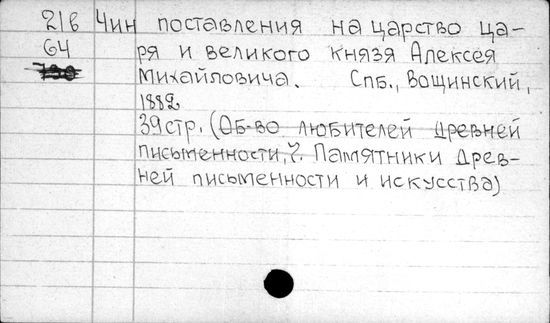 21в Чин поставления на царство ца-
64 ря и великого князя Алексея
Михайловича. Спб., Вощинский,
1882
39 стр. (Об-во любителей древней
письменности, 7. Памятники древ-
ней письменности и искусства)